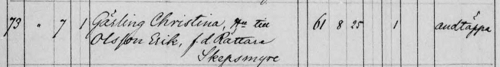 73 " 7 1 Gärling Christina, Hu till 61 8 25 1 andtäppa
Olsson Erik, f.d. Rättare
Skepsmyre